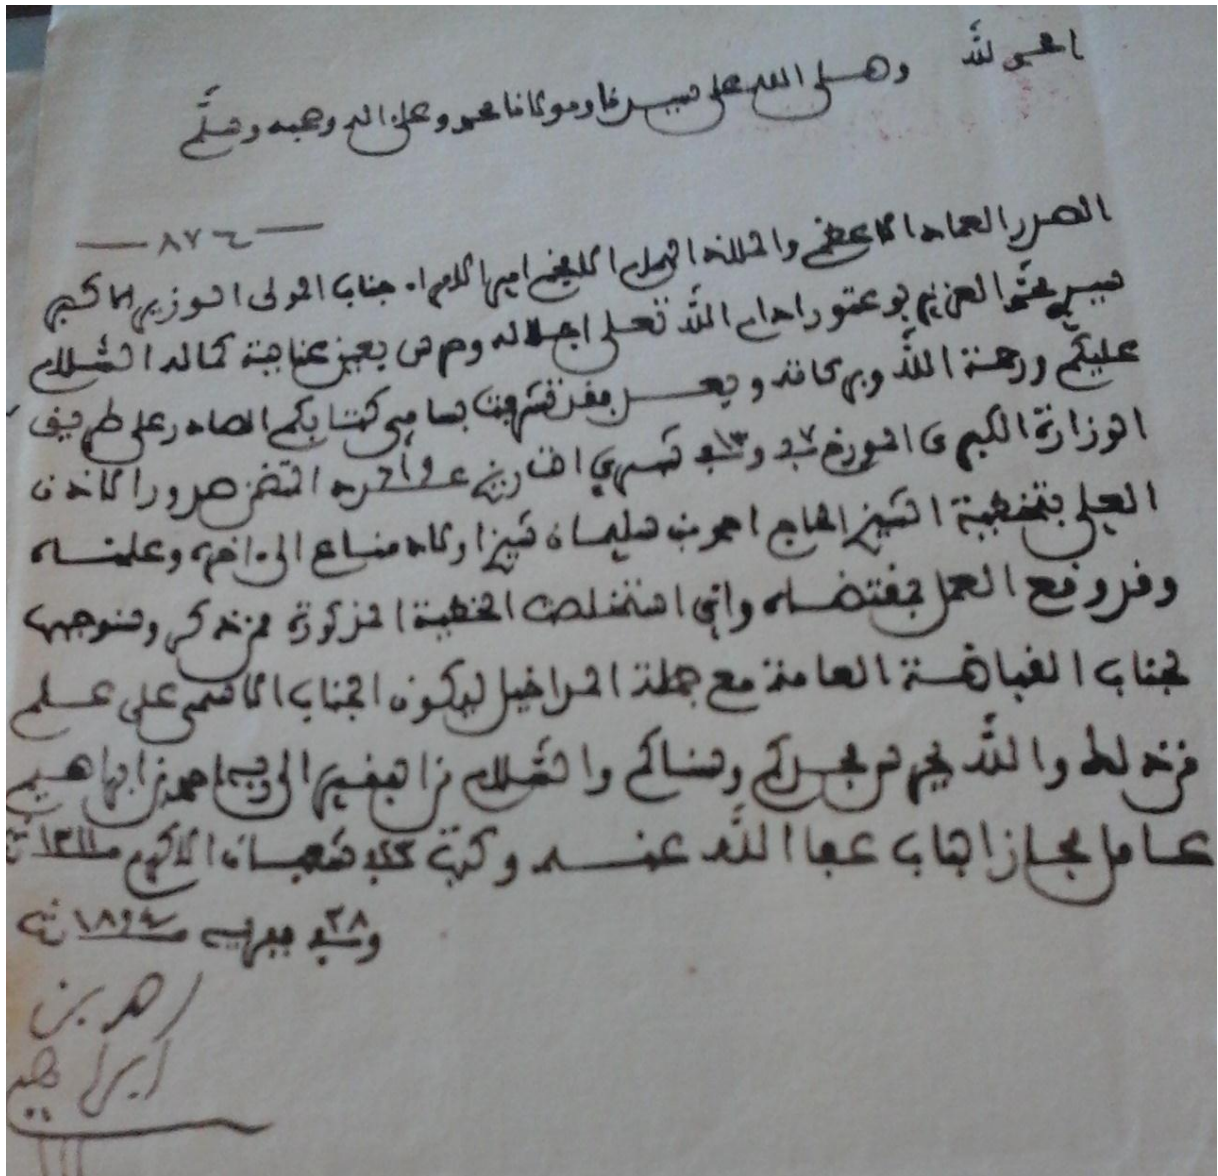 الحمد لله وصلى الله على سيدنا ومولانا محمد وعلى اله وصحبه وسلم
— ٨٧٤ —
الصدر العماد الاعظم والملاذ الهمام الافخم امير الامراء جناب المولى الوزير الاكبر
سيدي محمد العزيز بوعتور ادام الله تعلى اجلاله وحرس بعين عنايته كماله السلام
عليكم ورحمة الله وبركاته وبعد فقد تشرفت بسامي كتابكم الصادر على طريق
الوزارة الكبرى المورخ في ٧ وفي ١٣ المتضمن صدور الاذن
العلي بتخطية الشيخ الحاج احمد بن سليمان شيخ اولاد مناع الى اخره وعلمته
وقد وقع العمل بمقتضاه واني استخلصت الخطية المذكورة ممن ذكر وسنوجهها
لجناب القباضة العامة مع جملة المداخيل ليكون الجناب الاسمى على علم
من ذلك والله يحرس مجدكم وسناكم والسلام من الفقير الى ربه احمد بن ابراهيم
عامل مجاز الباب عفا الله عنه وكتب في شعبان الاكرم سنة ١٣١١
وفي ٢٨ سنة ١٨٩٤
احمد بن
ابراهيم